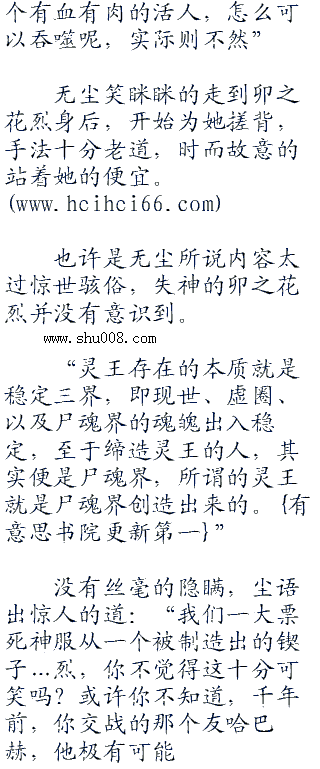 个有血有肉的活人，怎么可
以吞噬呢，实际则不然”
无尘笑眯眯的走到卯之
花烈身后，开始为她搓背，
手法十分老道，时而故意的
站着她的便宜。
(www.hcihci66.com)
也许是无尘所说内容太
过惊世骇俗，失神的卯之花
烈并没有意识到。
www.shu008.com
“灵王存在的本质就是
稳定三界，即现世、虚圈、
以及尸魂界的魂魄出入稳
定，至于缔造灵王的人，其
实便是尸魂界，所谓的灵王
就是尸魂界创造出来的。{有
意思书院更新第一}”
没有丝毫的隐瞒，尘语
出惊人的道：“我们一大票
死神服从一个被制造出的锲
子…烈，你不觉得这十分可
笑吗？或许你不知道，千年
前，你交战的那个友哈巴
赫，他极有可能